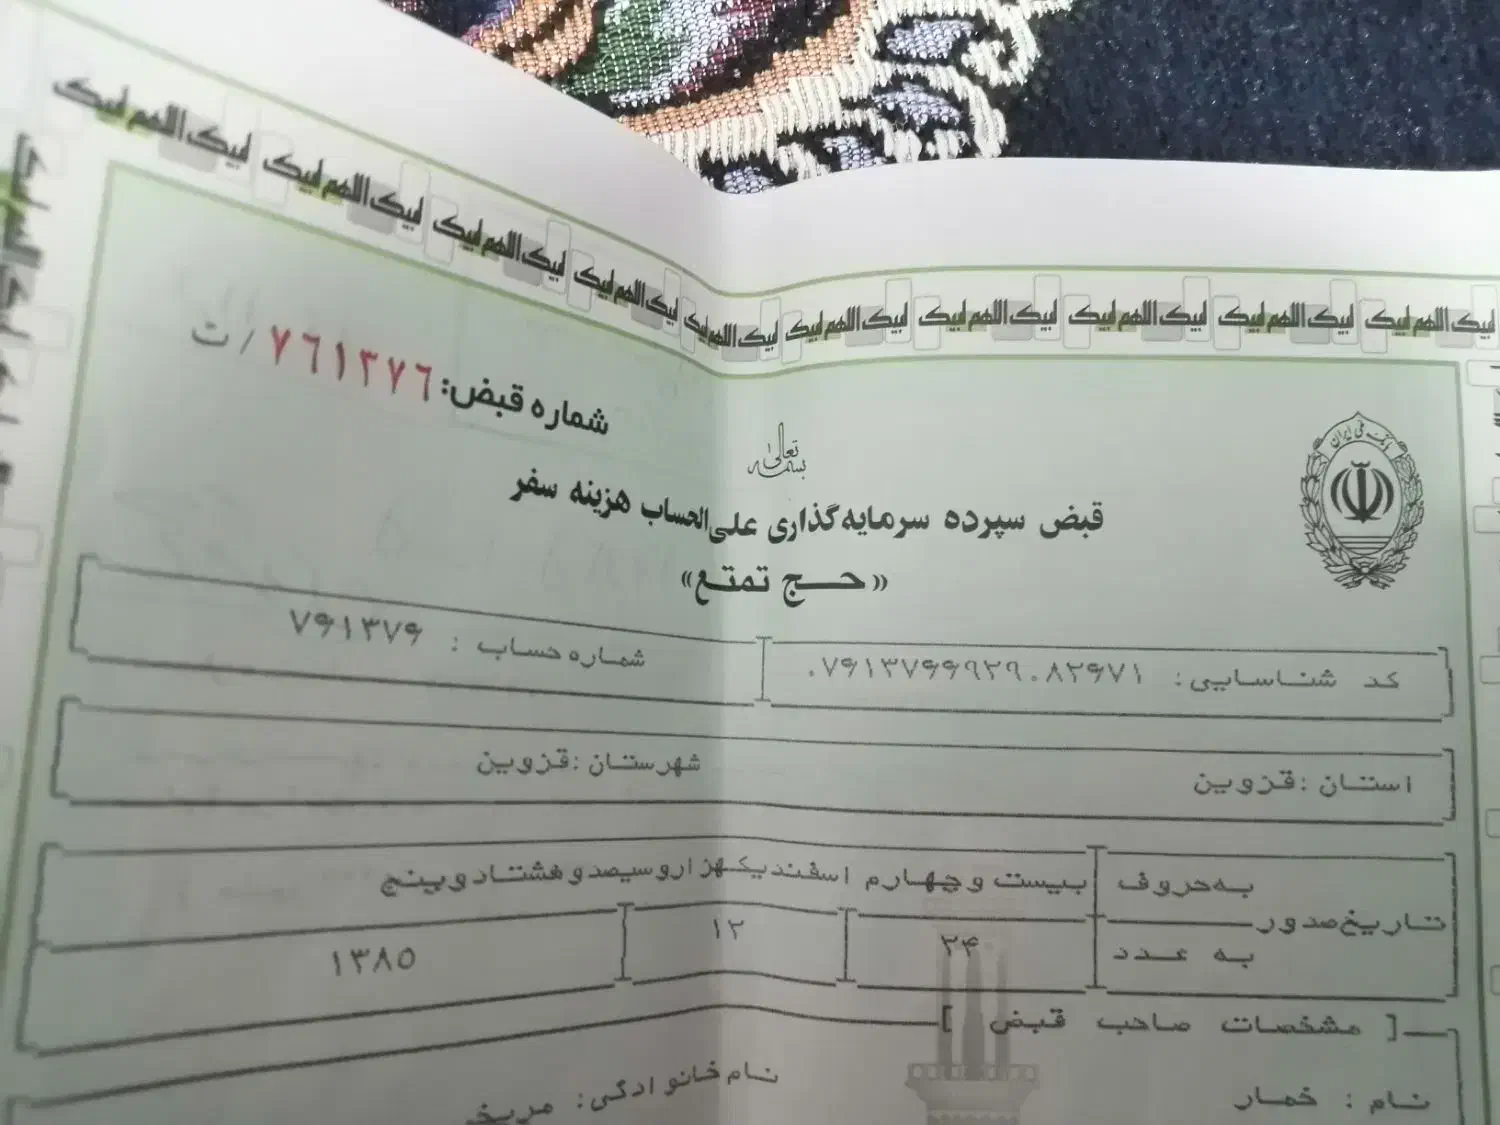 لبیک اللهم لبیک لبیک اللهم لبیک لبیک اللهم لبیک لبیک اللهم لبیک لبیک اللهم لبیک لبیک اللهم لبیک لبیک اللهم لبیک لبیک اللهم لبیک لبیک اللهم لبیک لبیک اللهم لبیک
شماره قبض: ۷۶۱۳۷۶ / ت
بانک ملی ایران
بسمه تعالی
قبض سپرده سرمایه‌گذاری علی‌الحساب هزینه سفر
«حـج تمتـع»
کد شناسایی: ۰۷۶۱۳۷۶۶۹۲۹۰۸۲۶۷۱ شماره حساب : ۷۶۱۳۷۶
استان : قزوین شهرستان : قزوین
تاریخ صدور به حروف بیست و چهارم اسفند یکهزار و سیصد و هشتاد و پنج
به عدد ۲۴ ۱۲ ۱۳۸۵
[ مشخصات صاحب قبض ]
نام : خمار نام خانوادگی: